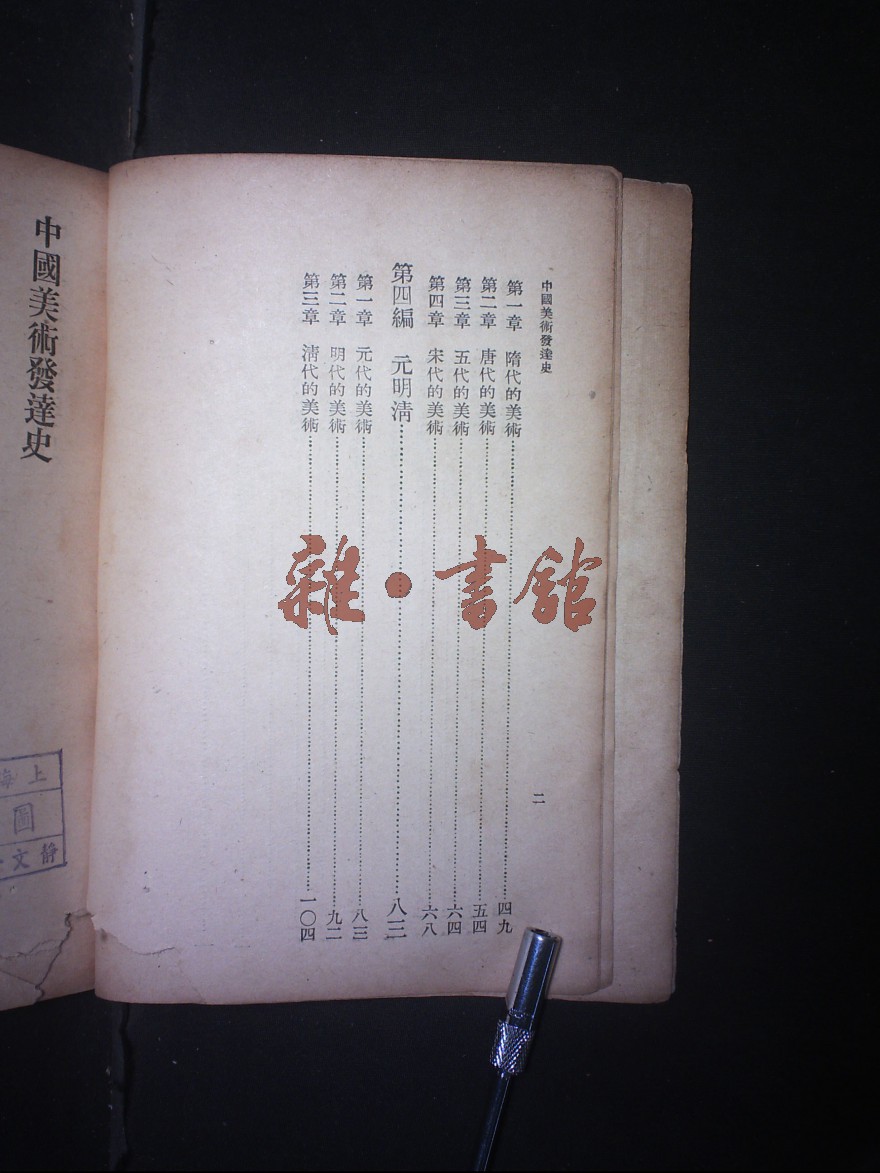 中國美術發達史
二
第一章 隋代的美術 四九
第二章 唐代的美術 五四
第三章 五代的美術 六四
第四章 宋代的美術 六八
第四編 元明清 八三
第一章 元代的美術 八三
第二章 明代的美術 九二
第三章 清代的美術 一〇四
雜·書館
中國美術發達史
上海
圖
靜文